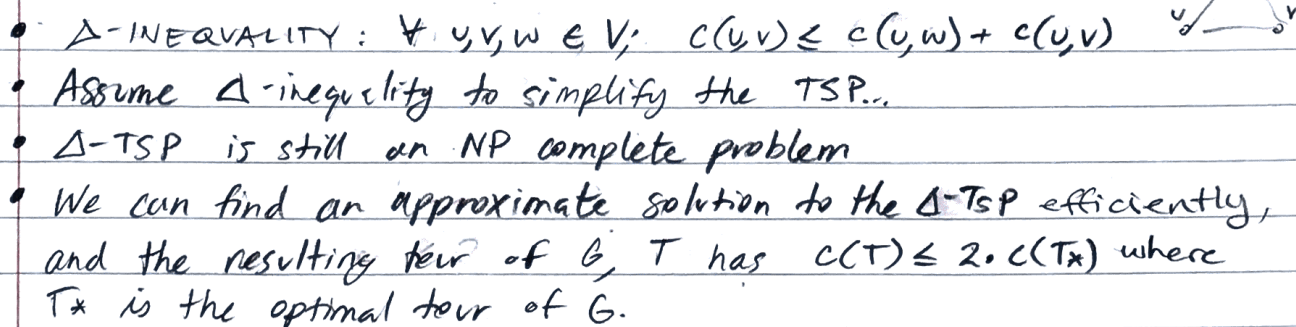 • Δ-INEQUALITY : ∀ u,v,w ∈ V; c(u,v) ≤ c(u,w) + c(u,v) u v
• Assume Δ-inequality to simplify the TSP...
• Δ-TSP is still an NP complete problem
• We can find an approximate solution to the Δ-TSP efficiently,
and the resulting tour of G, T has c(T) ≤ 2·c(T*) where
T* is the optimal tour of G.